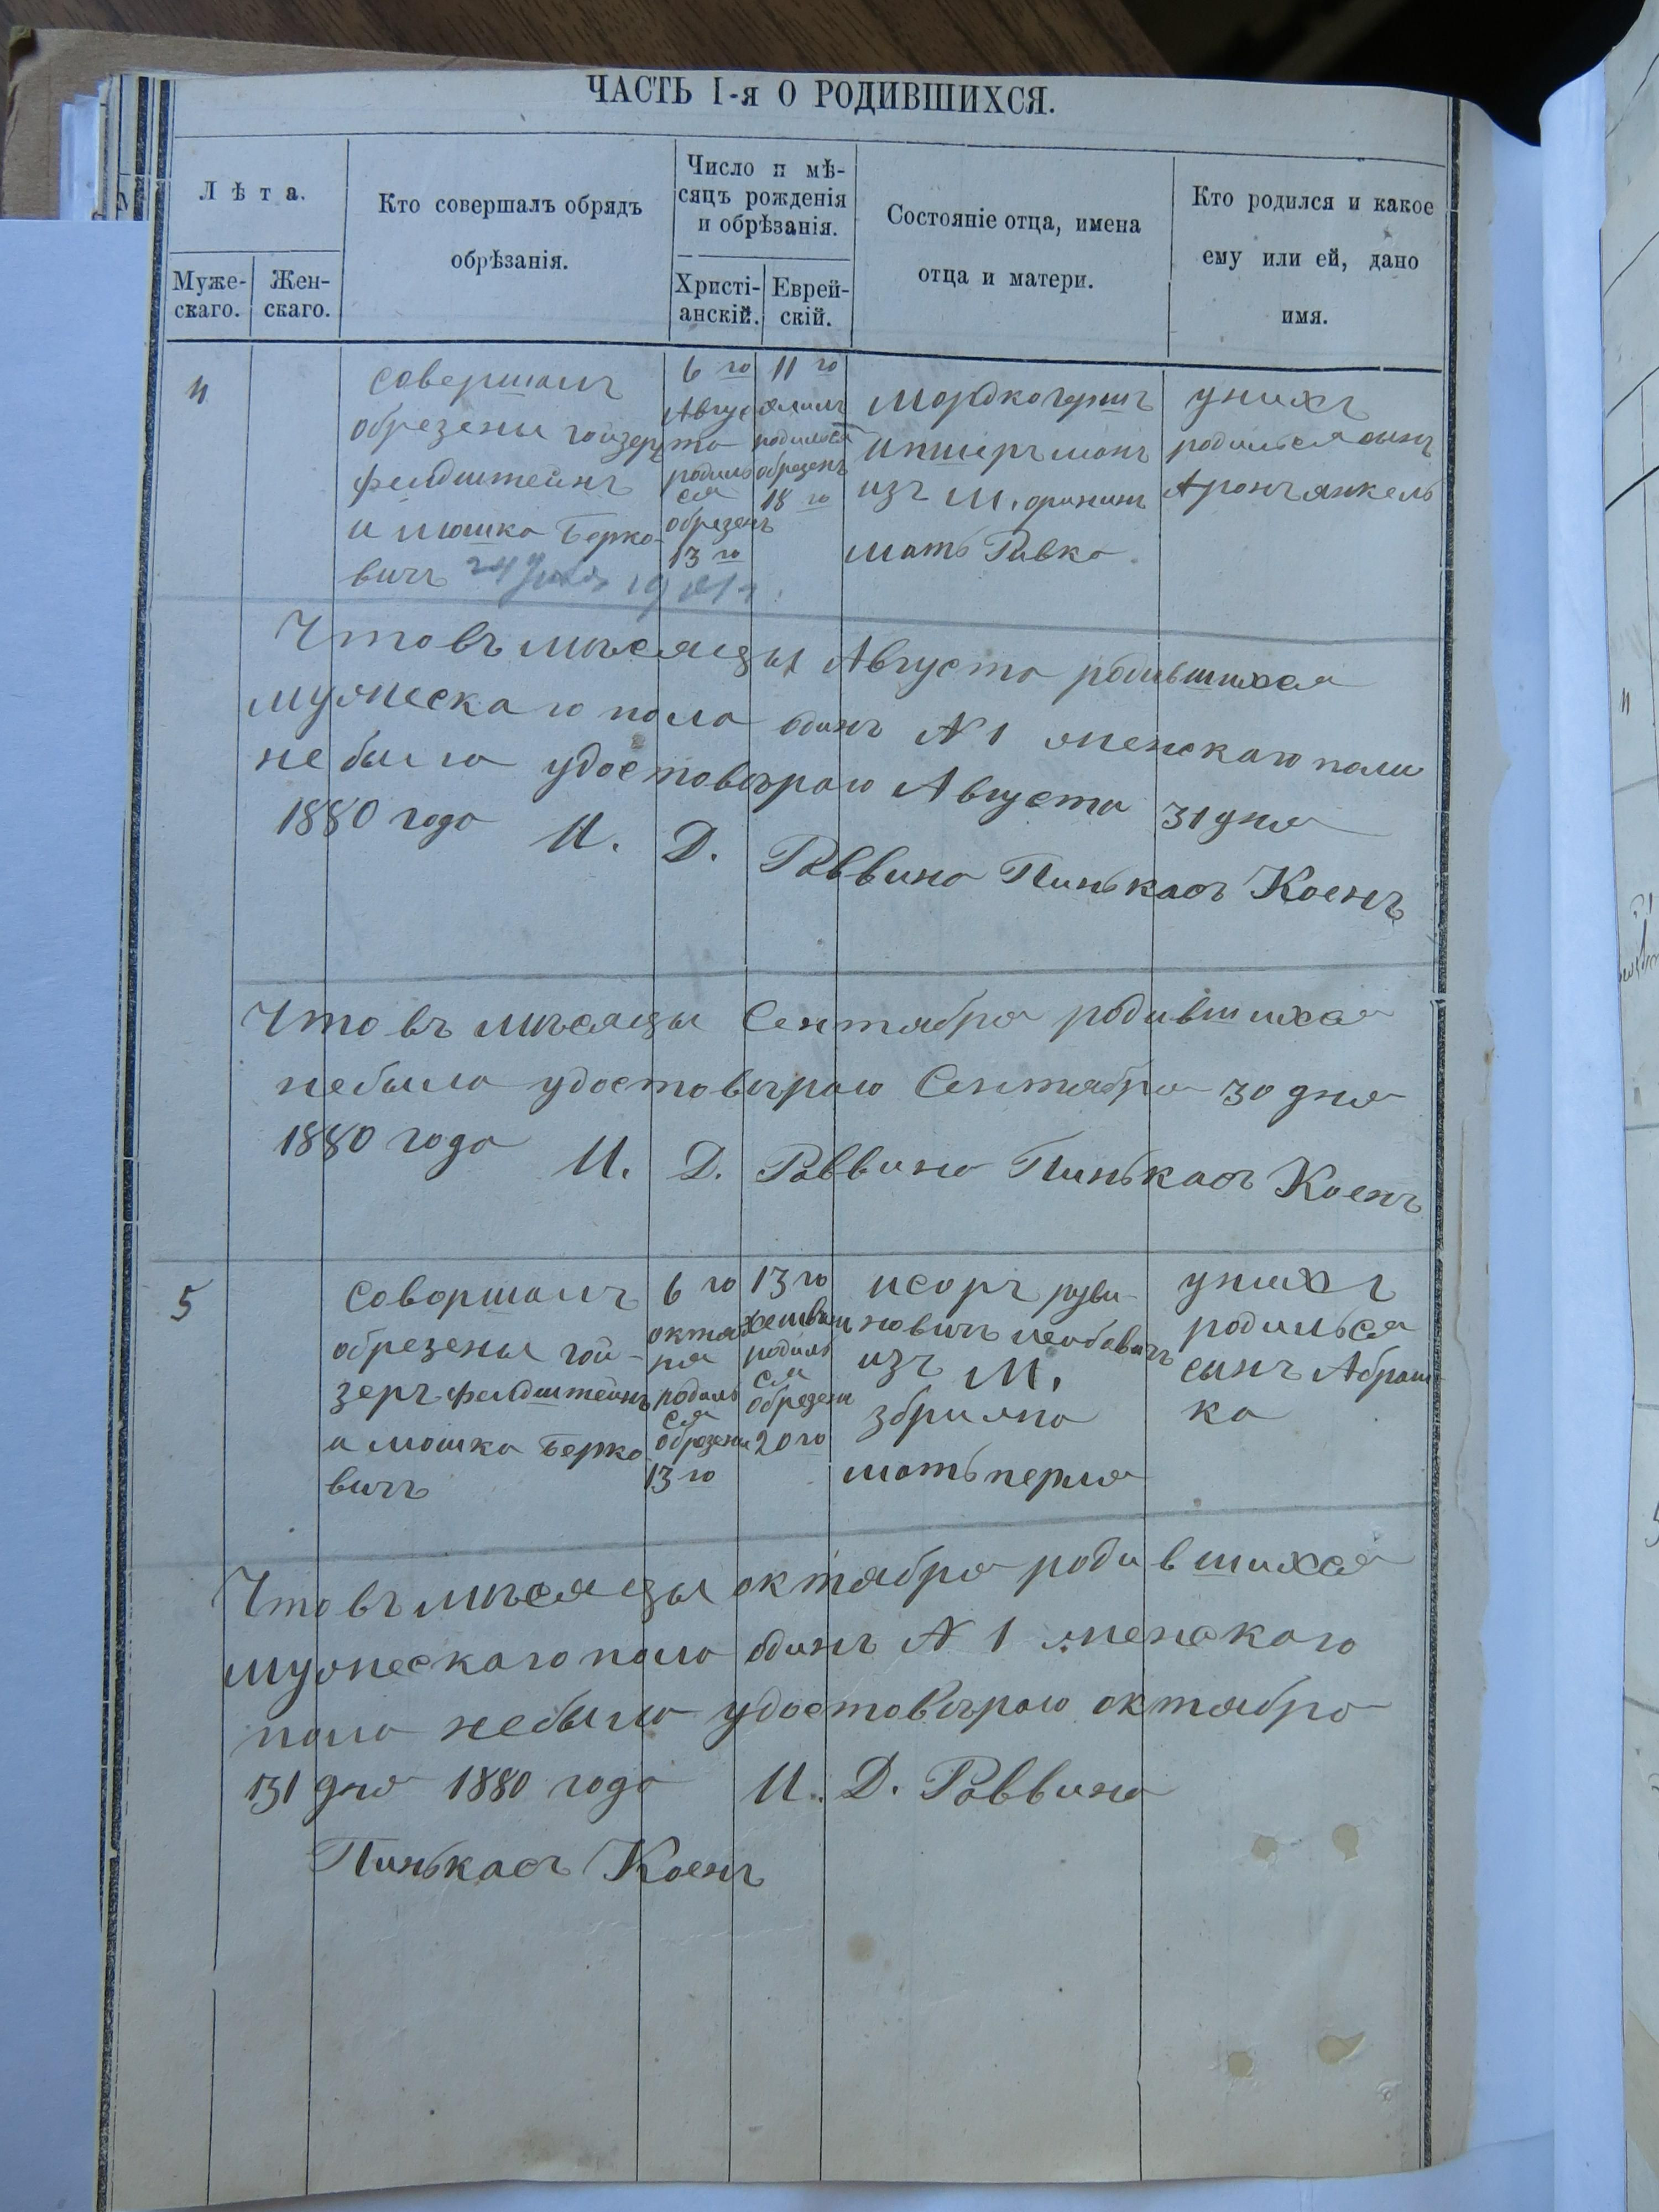 ЧАСТЬ I-я О РОДИВШИХСЯ.
Лѣта.
Муже-
скаго.
Жен-
скаго.
Кто совершалъ обрядъ
обрѣзанія.
Число и мѣ-
сяцъ рожденія
и обрѣзанія.
Христі-
анскій.
Еврей-
скій.
Состояніе отца, имена
отца и матери.
Кто родился и какое
ему или ей, дано
имя.
4
совершалъ
обрезены гойзеръ
фелдштейнъ
и мошка Берко-
вичъ
6 го
Авгус
та
родиль
ся
обрезенъ
13 го
11 го
родился
обрезенъ
18 го
Мордко
изъ М.
мать Ривка
унихъ
родилься сынъ
Аронъ янкель
Что въ мѣсяцы Августа родившихся
мужескаго пола одинъ N 1 женскаго пола
небыло удостовѣраю Августа 31 дня
1880 года И. Д. Раввина Пинькасъ Коенъ
Что въ мѣсяцы Сентябра родившихся
небыло удостовѣраю Сентябра 30 дня
1880 года И. Д. Раввина Пинькасъ Коенъ
5
Совершалъ
обрезены гой-
зеръ фелдштейнъ
и мошка Берко
вичъ
6 го
октя
родиль
ся
обрезены
13 го
13 го
хешван
родиль
ся
обрезены
20 го
исоръ руви-
новичъ
изъ М.
збрижа
мать перля
унихъ
родилься
сынъ Абраш-
ка
Что въ мѣсяцы октябра родившихся
мужескаго пола одинъ N 1 женскаго
пола небыло удостовѣраю октябра
31 дня 1880 года И. Д. Раввина
Пинькасъ Коенъ